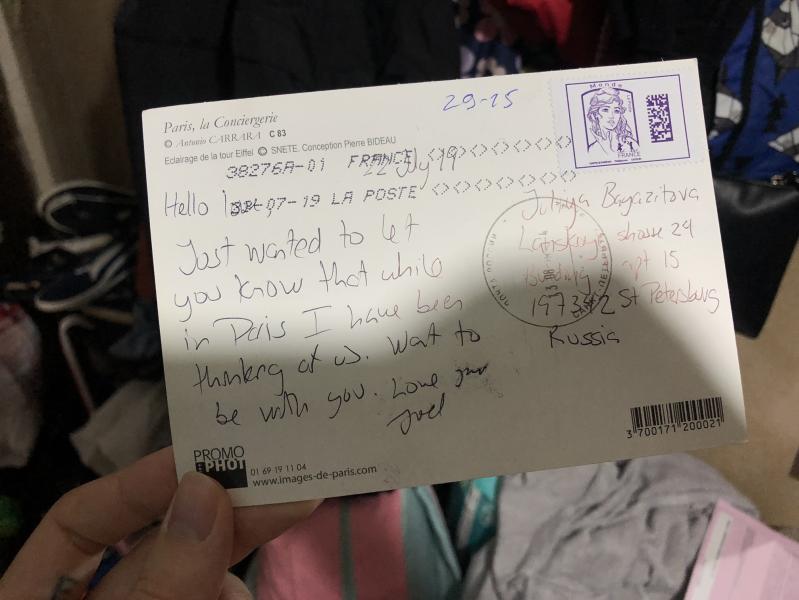 29-25
Monde
FRANCE
Paris, la Conciergerie
© Antonio CARRARA C 83
Eclairage de la tour Eiffel © SNETE. Conception Pierre BIDEAU
38276A-01 FRANCE
22 July 19
Hello
07-19 LA POSTE
Just wanted to let
you know that while
in Paris I have been
thinking of us. Want to
be with you. Love
Joel
Bagazitova
29
apt 15
St Petersburg
Russia
PROMO
PHOT
01 69 19 11 04
www.images-de-paris.com
3 700171 200021